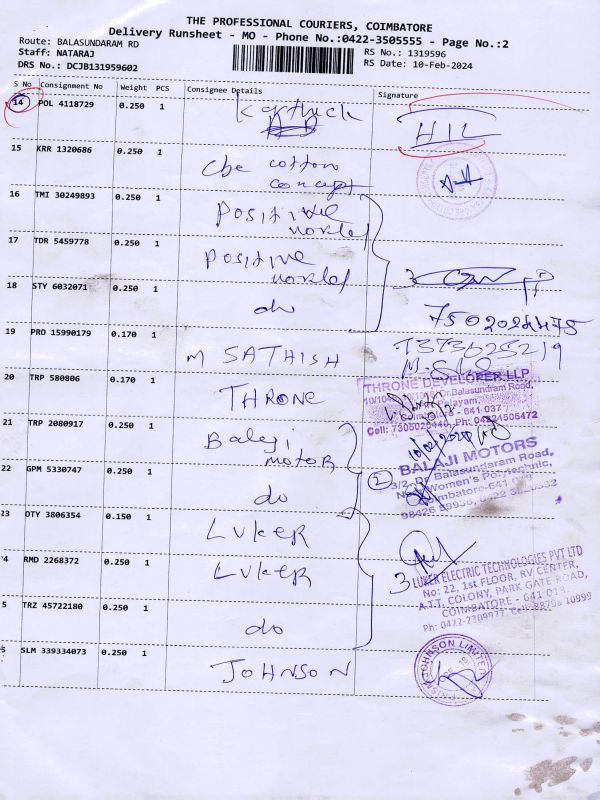 THE PROFESSIONAL COURIERS, COIMBATORE
Delivery Runsheet - MO - Phone No.:0422-3505555 - Page No.:2
Route: BALASUNDARAM RD
Staff: NATARAJ
DRS No.: DCJB131959602
RS No.: 1319596
RS Date: 10-Feb-2024
S No Consignment No Weight PCS Consignee Details Signature
14 POL 4118729 0.250 1 Karthick HIL
15 KRR 1320686 0.250 1 Cbe cotton
concept
16 TMI 30249893 0.250 1 Positive
17 TDR 5459778 0.250 1 Positive
18 STY 6032071 0.250 1 do 3
7502024475
19 PRO 15990179 0.170 1 M SATHISH 7373625219
20 TRP 580806 0.170 1 THRONE
THRONE DEVELOPER LLP
Dr.Balasundram Road,
641 037
Cell: 7305025440, Ph: 04224506472
21 TRP 2080917 0.250 1 Balaji
motor
10/02/2024
BALAJI MOTORS
3/2, Dr. Balasundaram Road,
Women's Polytechnic,
Coimbatore-641
22 GPM 5330747 0.250 1 do 2
23 OTY 3806354 0.150 1 LUKER
24 RMD 2268372 0.250 1 LUKER 3
LUKER ELECTRIC TECHNOLOGIES PVT LTD
No: 22, 1st FLOOR, RV CENTER,
A.T.T. COLONY, PARK GATE ROAD,
COIMBATORE - 641 018.
5 TRZ 45722180 0.250 1 do
SLM 339334073 0.250 1 JOHNSON
JOHNSON LIMITED